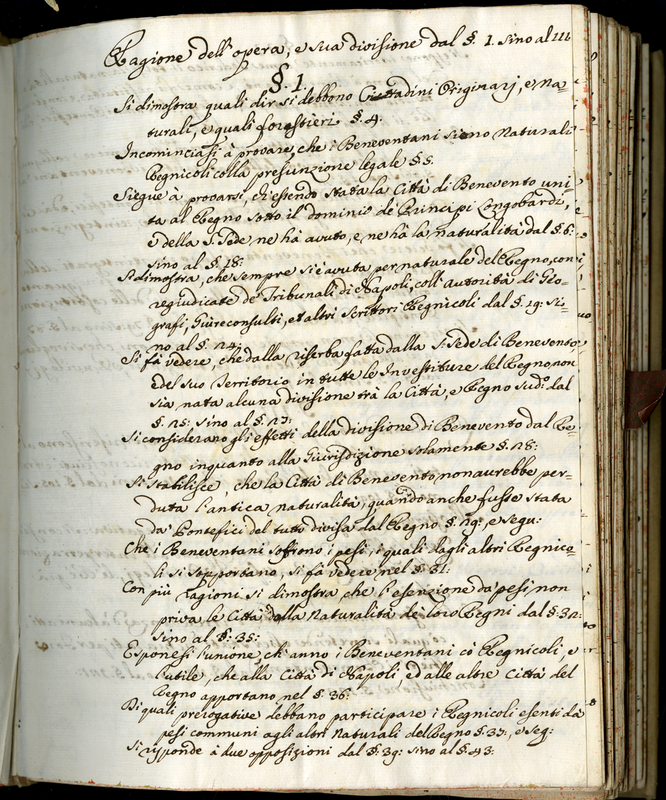 Ragione dell'opera, e sua divisione dal §. I. sino al III
§. I.
Si dimostra quali dir si debbono Cittadini Originarj, e Na-
turali, e quali forestieri §. 4.
Incominciasi à provare, che i Beneventani siano Naturali
Regnicoli colla presunzione legale §. 5.
Siegue à provarsi, ch'essendo stata la Città di Benevento uni
ta al Regno sotto il dominio de' Principi Longobardi,
e della S. Sede ne hà avuto, e ne hà la naturalità dal §. 6.
sino al §. 18:
Si dimostra, che sempre si è avuta per naturale del Regno, con i
regiudicate de' Tribunali di Napoli, coll'autorità di Geo-
grafi, Giureconsulti, et altri Scrittori Regnicoli dal §. 19: si-
no al §. 24:
Si fà vedere, che dalla riserba fatta dalla S. Sede di Benevento,
del suo Territorio in tutte le Investiture del Regno, non
sia nata alcuna divisione trà la Città, e Regno sud:º dal
§. 25: sino al §. 27:
Si considerano gli effetti della divisione di Benevento dal Re-
gno inquanto alla Giurisdizione solamente §. 28:
Si stabilisce, che la Città di Benevento non aurebbe per-
duta l'antica naturalità, quando anche fusse stata
da' Pontefici del tutto divisa dal Regno §. 29: e segu:
Che i Beneventani soffrono i pesi, i quali dagli altri Regnico-
li si sopportano, si fà vedere nel §. 31:
Con più ragioni si dimostra che l'esenzione da' pesi non
priva le Città della Naturalità de' loro Regni dal §. 32:
sino al §. 35:
Esponesi l'unione, ch'anno i Beneventani cò Regnicoli, e
l'utile, che alla Città di Napoli, ed alle altre Città del
Regno apportano nel §. 36:
Di quali prerogative debbano participare i Regnicoli esenti da'
pesi communi agli altri Naturali del Regno §. 37: e seg:
Si risponde à due opposizioni dal §. 39: sino al §. 43: